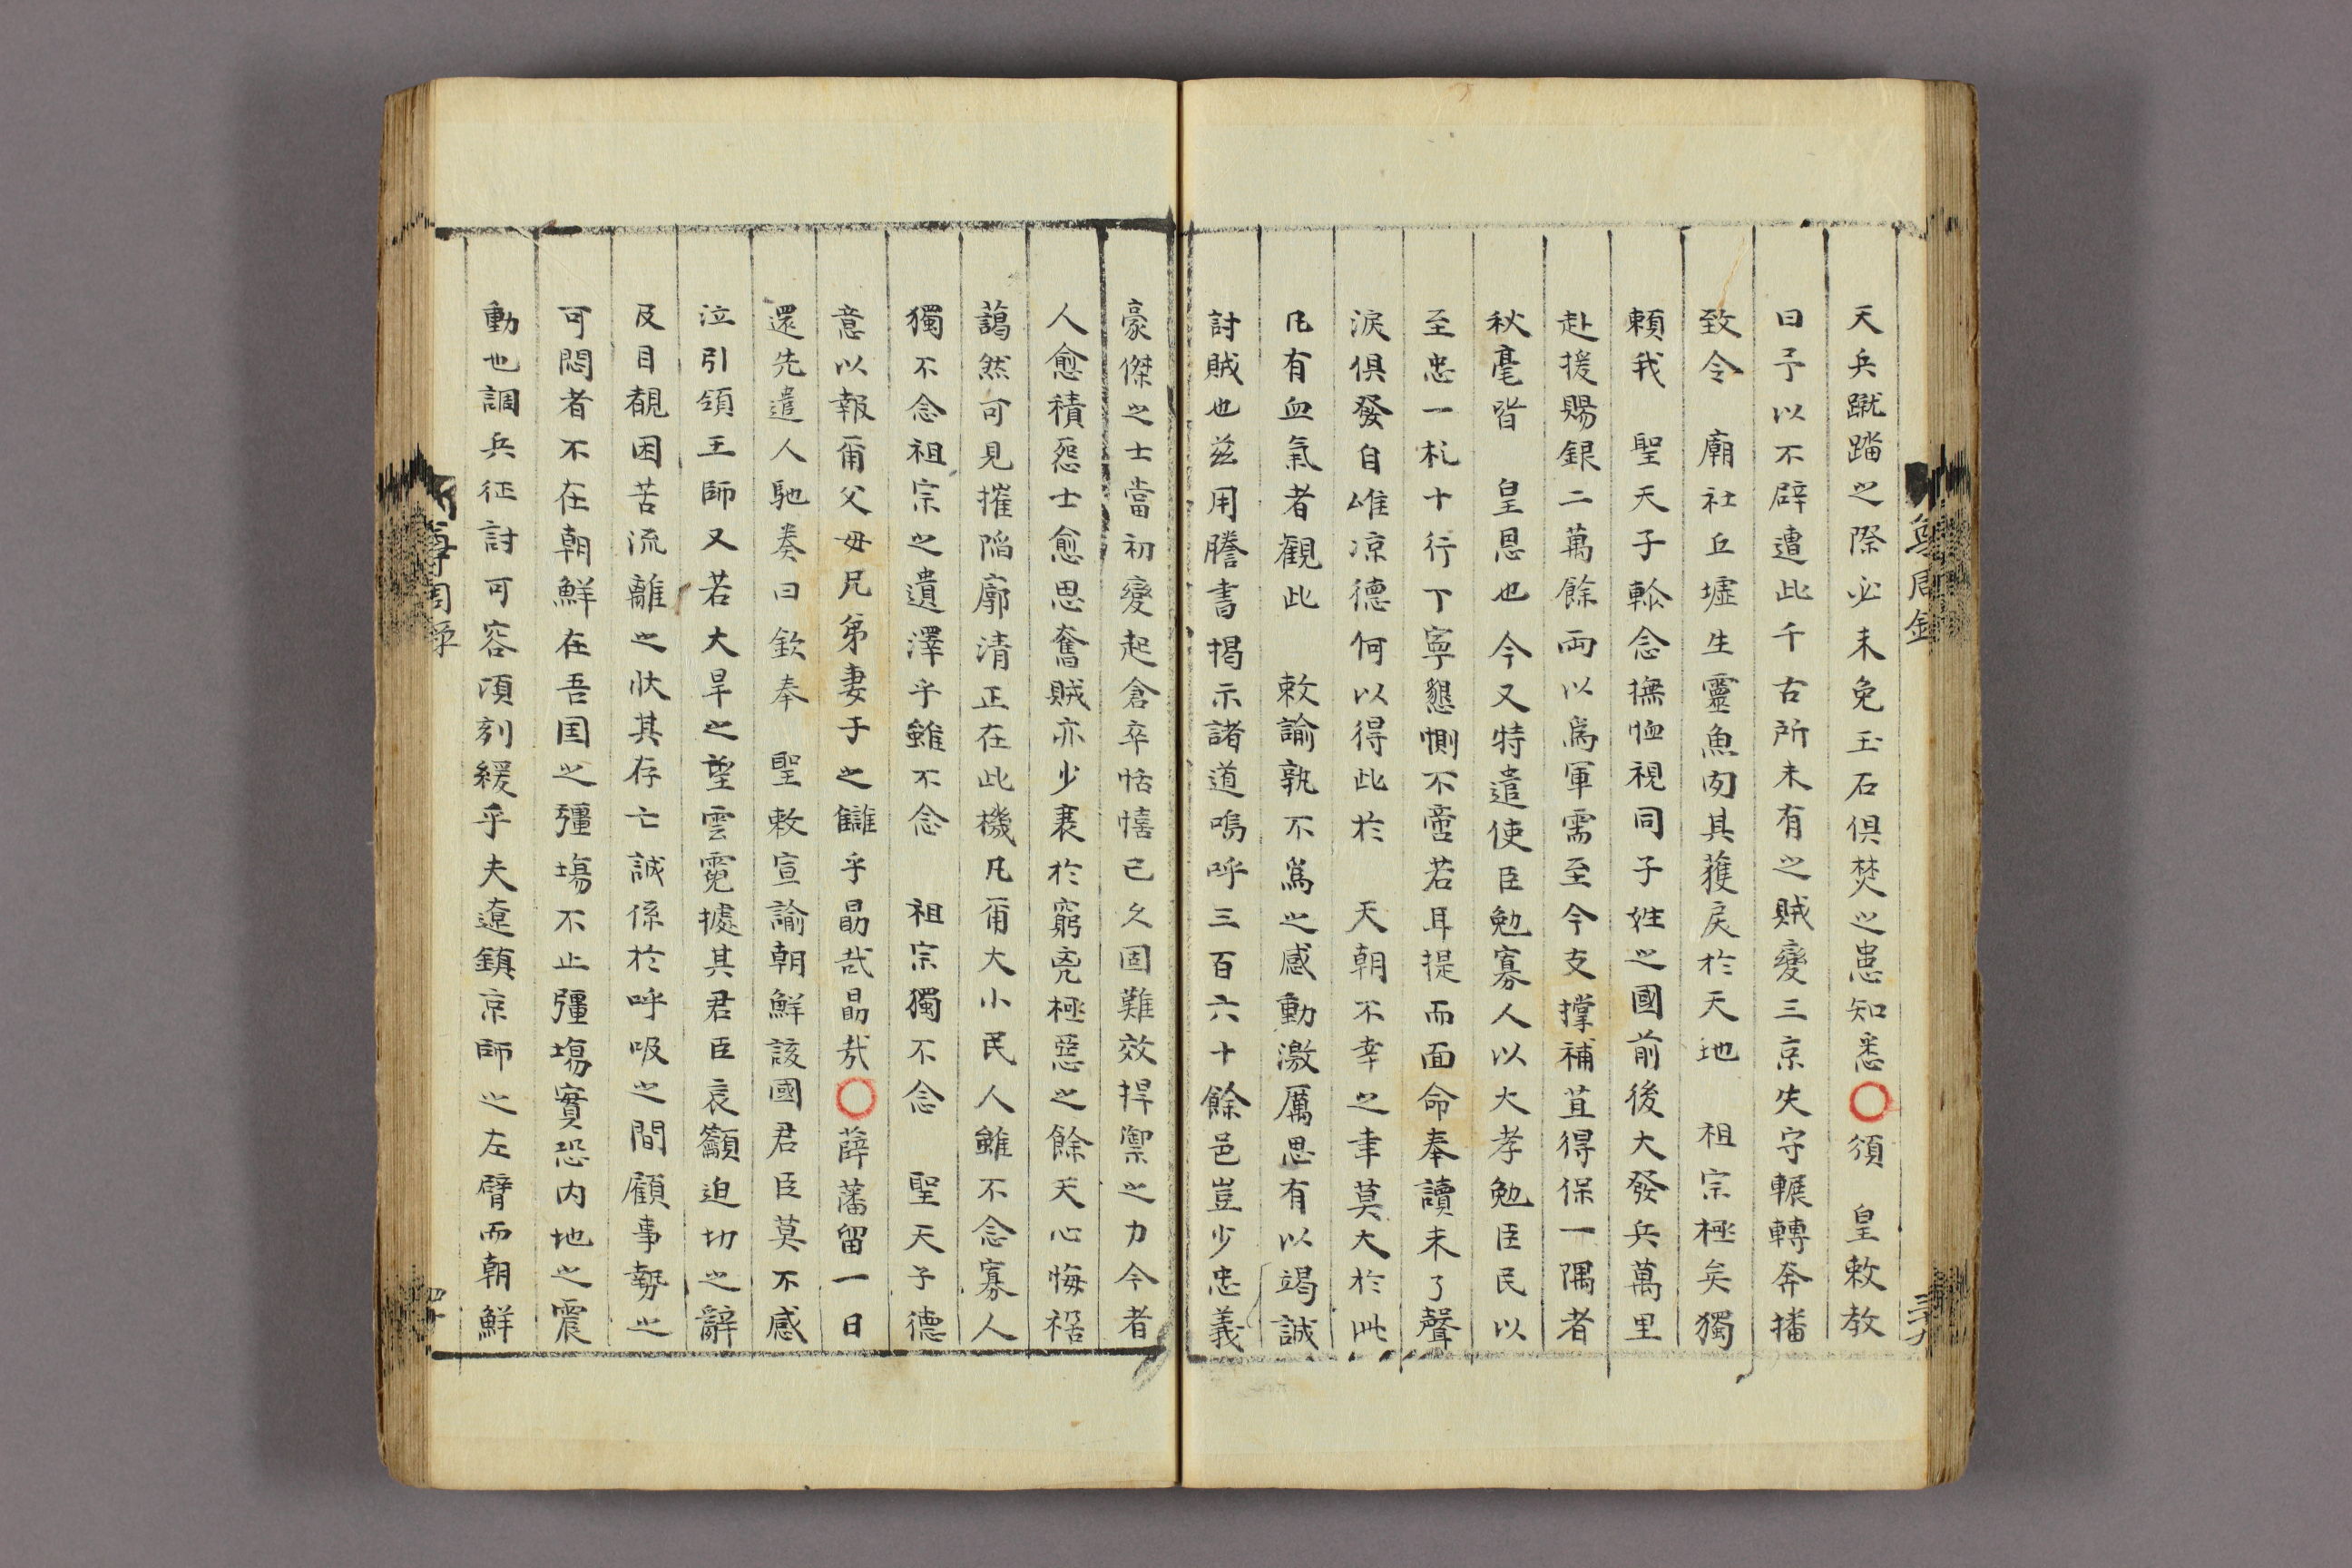 天兵蹴踏之際必未免玉石俱焚之患知悉○頒　皇敕教
曰予以不辟遭此千古所未有之賊變三京失守輾轉奔播
致令　廟社丘墟生靈魚肉其獲戾於天地　祖宗極矣獨
頼我　聖天子軫念撫恤視同子姓之國前後大發兵萬里
赴援賜銀二萬餘兩以爲軍需至今支撑補苴得保一隅者
秋毫皆　皇恩也今又特遣使臣勉寡人以大孝勉臣民以
至忠一札十行丁寧懇惻不啻若耳提而面命奉讀未了聲
淚俱發自雖凉德何以得此於　天朝不幸之幸莫大於此
凡有血氣者觀此　敕諭孰不爲之感動激厲思有以竭誠
討賊也玆用謄書掲示諸道嗚呼三百六十餘邑豈少忠義
豪傑之士當初變起倉卒恬憘已久固難效捍禦之力今者
人愈積怨士愈思奮賊亦少衰於窮兇極惡之餘天心悔禍
藹然可見摧陥廓清正在此機凡甭大小民人雖不念寡人
獨不念祖宗之遺澤乎雖不念　祖宗獨不念　聖天子德
意以報甭父母兄弟妻子之讎乎勗哉勗哉○薛藩留一日
還先遣人馳奏曰欽奉　聖敕宣諭朝鮮該國君臣莫不感
泣引領王師又若大旱之望雲霓據其君臣哀籲迫切之辭
及目覩困苦流離之狀其存亡誠係於呼吸之間顧事勢之
可悶者不在朝鮮在吾国之彊埸不止彊埸實恐内地之震
動也調兵征討可容頃刻緩乎夫遼鎮京師之左臂而朝鮮
尊周錄
三十九
尊周录
四十